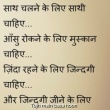 साथ चलने के लिए साथी
चाहिए...
आँसु रोकने के लिए मुस्कान
चाहिए...
ज़िंदा रहने के लिए जिन्दगी
चाहिए...
और जिन्दगी जीने के लिए